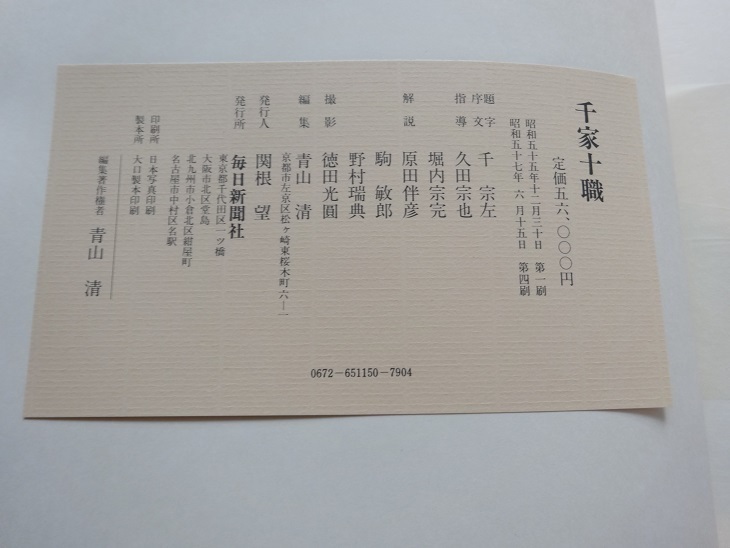 千家十職
定価五六、〇〇〇円
昭和五十五年十二月三十日 第一刷
昭和五十七年 六 月十五日 第四刷
題字 千 宗左
序文
指導 久田宗也
堀内宗完
解説 原田伴彦
駒 敏郎
野村瑞典
撮影 徳田光圓
編集 青山 清
京都市左京区松ヶ崎東桜木町六ー一
発行人 関根 望
発行所 毎日新聞社
東京都千代田区一ツ橋
大阪市北区堂島
北九州市小倉北区紺屋町
名古屋市中村区名駅
印刷所 日本写真印刷
製本所 大口製本印刷
編集著作権者 青山 清
0672－651150－7904